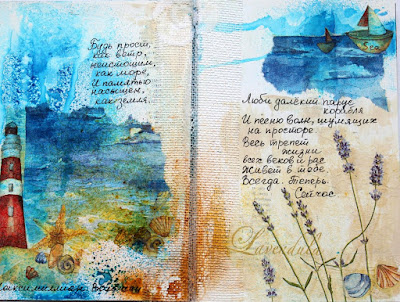 Будь прост,
как ветр,
неистощим,
как море,
И памятью
насыщен,
как земля.
Люби далёкий парус
корабля
И песню волн, шумящих
на просторе
Весь трепет
жизни
всех веков и рас
Живёт в тебе.
Всегда. Теперь.
Сейчас
Lavendula
Максимилиан Волошин